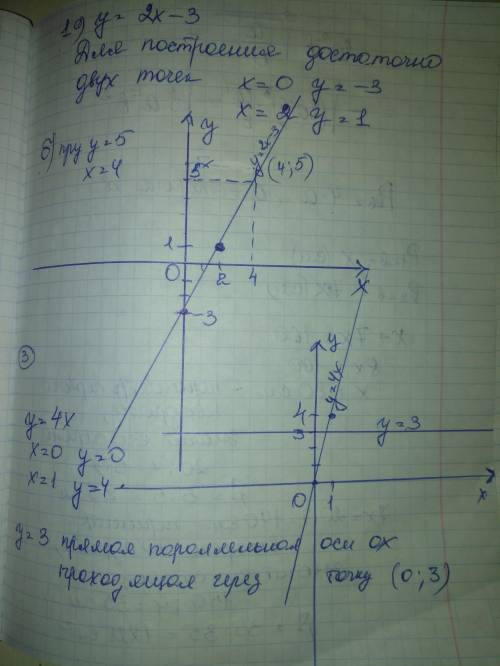 1а) y = 2x - 3
Для построения достаточно
двух точек x = 0 y = -3
x = 2 y = 1
б) при y = 5
x = 4
y
5
y = 2x - 3
(4;5)
1
0 2 4 x
-3
3
y
y = 4x
4
3 y = 3
y = 4x
x = 0 y = 0
x = 1 y = 4
0 1 x
y = 3 прямая пароллельная оси ох
проходящая через точку (0;3)